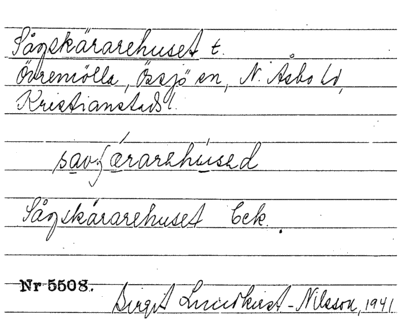 Sågskärarehuset t.
Övremölla, Össjö sn, N. Åsbo hd,
Kristianstads l.
Sågskärarehuset Eek.
Nr 5508.
Birgit Lundkvist-Nilsson, 1941